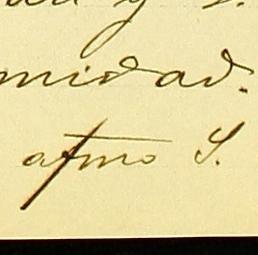 y s.
midad.
afmo S.